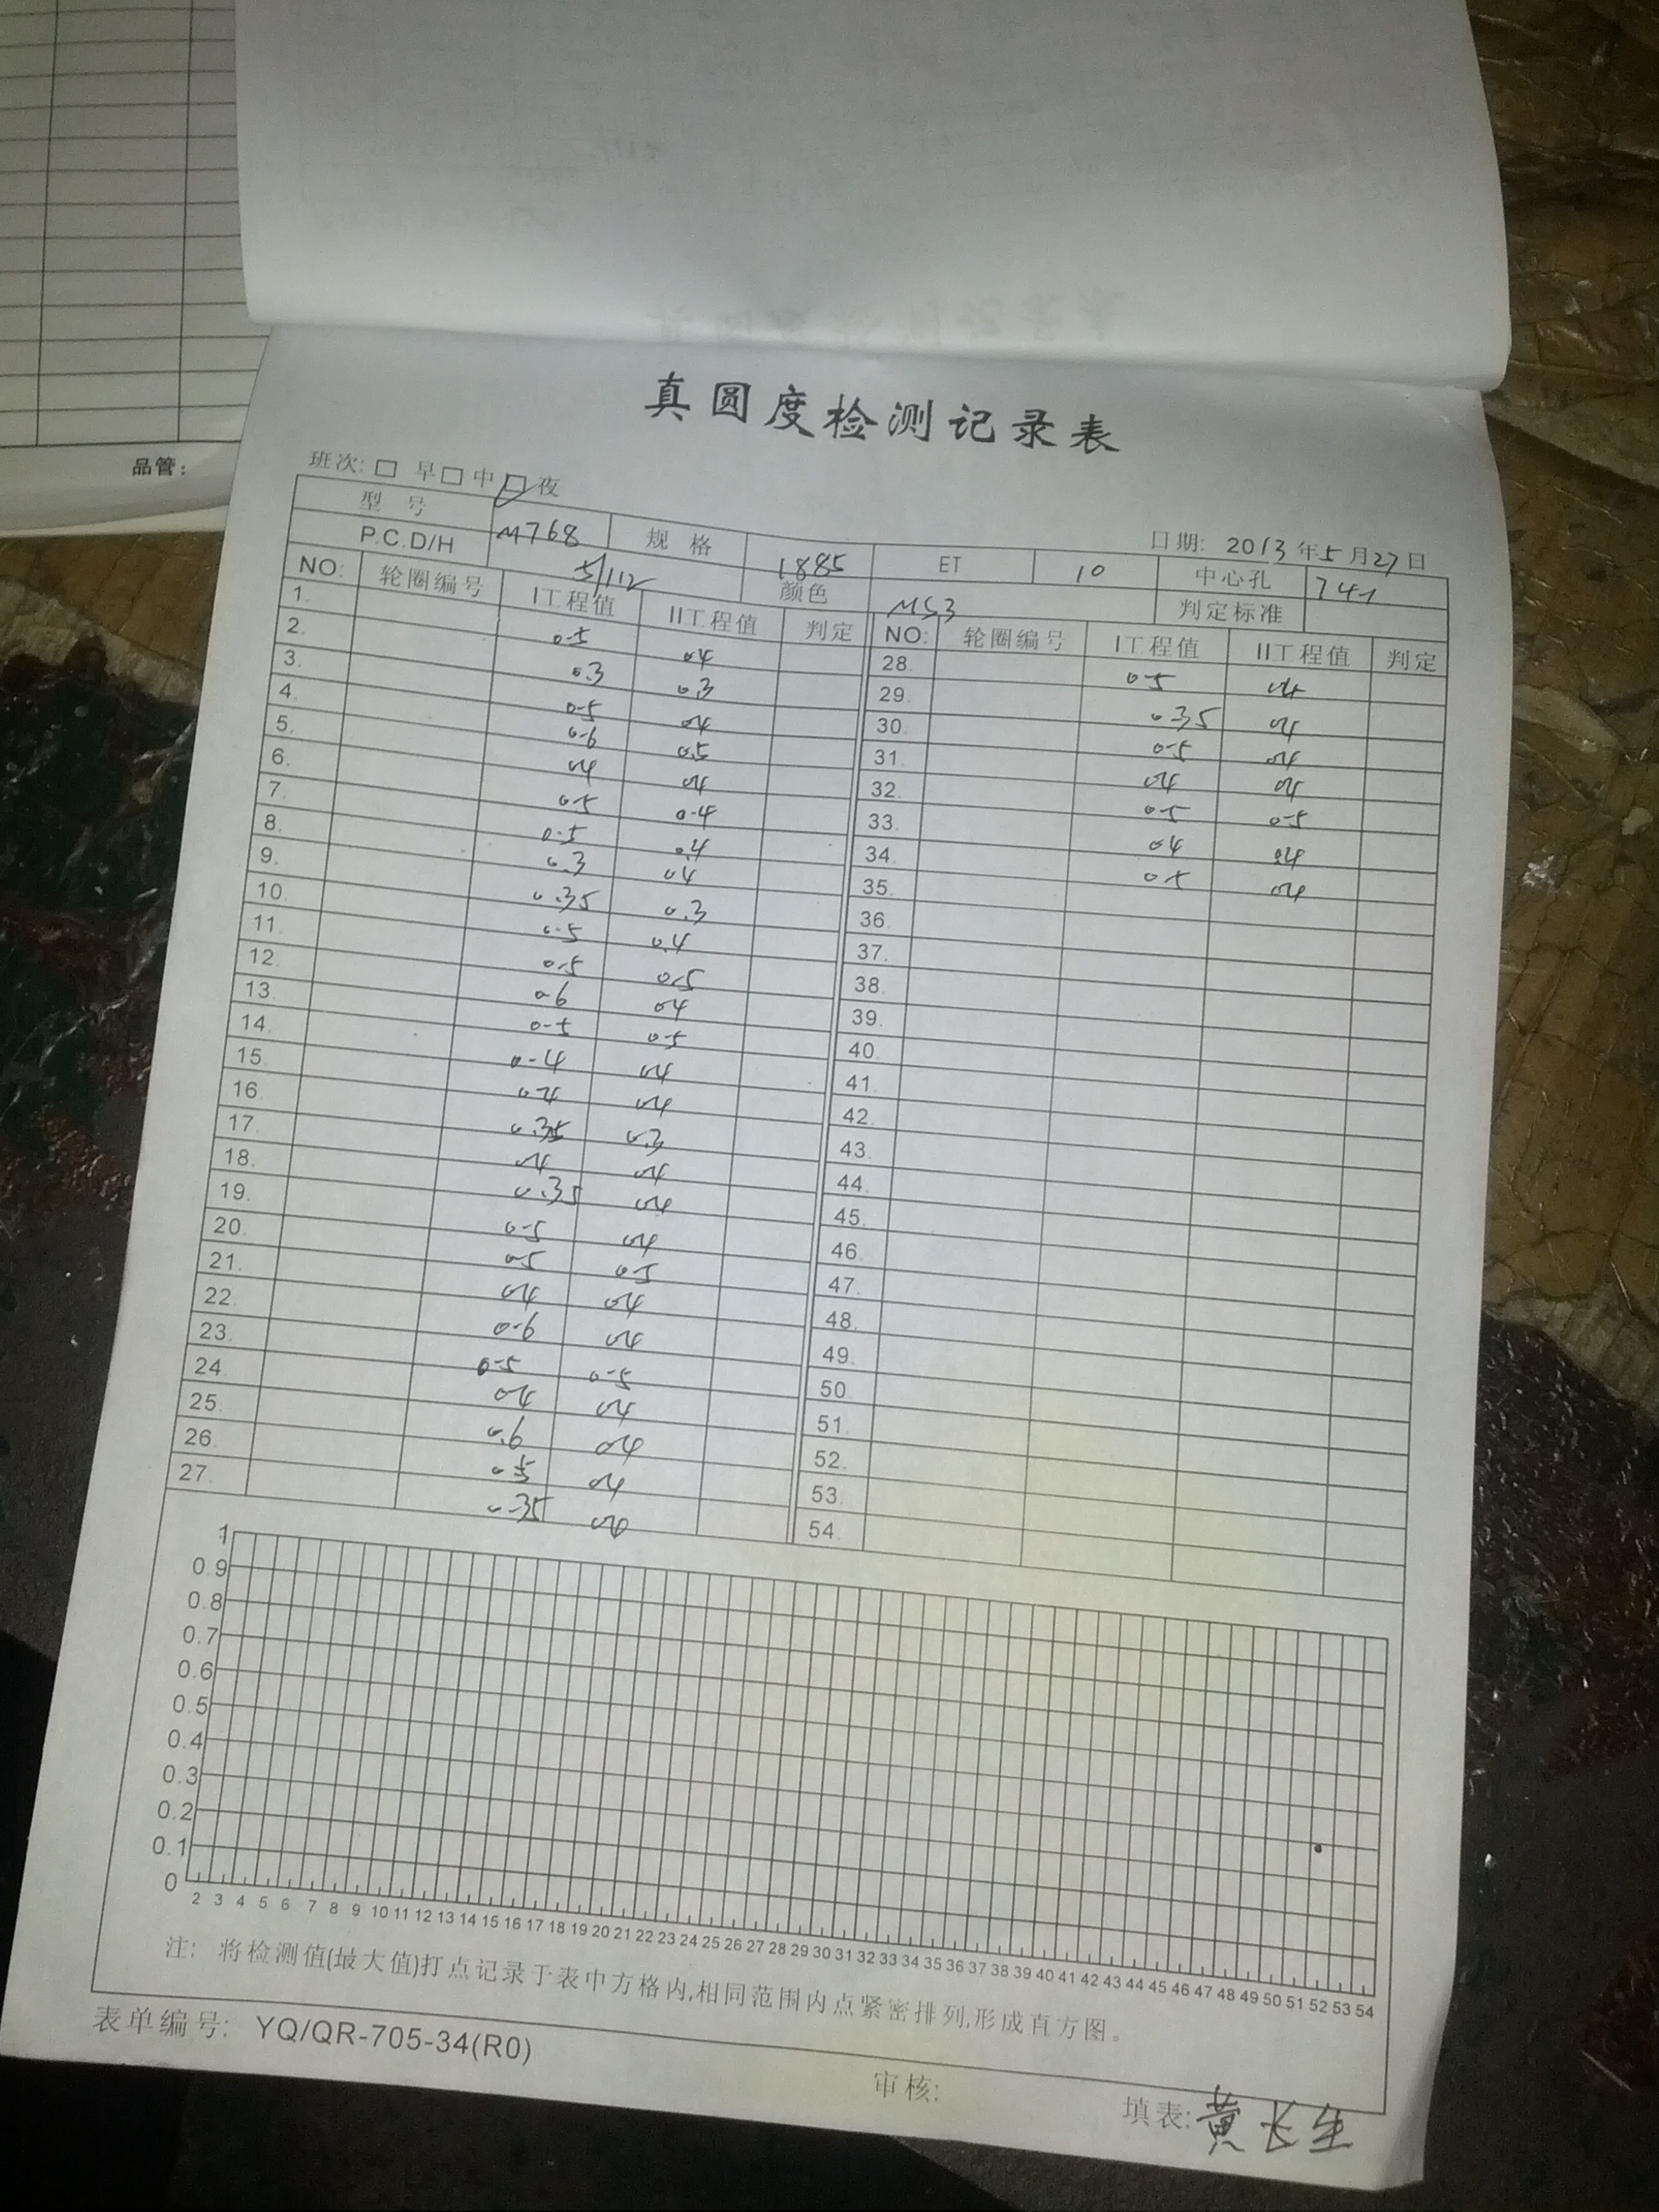 品管：
真圆度检测记录表
班次: □ 早 □ 中 ☑ 夜
日期: 2013 年 5 月 27 日
型号 M768 规格 1885 ET 10 中心孔 741
P.C.D/H 5/112 颜色 MS3 判定标准
NO: 轮圈编号 I工程值 II工程值 判定 NO: 轮圈编号 I工程值 II工程值 判定
1. 0.5 0.4 28. 0.5 0.4
2. 0.3 0.3 29. 0.35 0.4
3. 0.5 0.4 30. 0.5 0.4
4. 0.6 0.5 31. 0.4 0.4
5. 0.4 0.4 32. 0.5 0.5
6. 0.5 0.4 33. 0.4 0.4
7. 0.5 0.4 34. 0.5 0.4
8. 0.3 0.4 35.
9. 0.35 0.3 36.
10. 0.5 0.4 37.
11. 0.5 0.5 38.
12. 0.6 0.4 39.
13. 0.5 0.5 40.
14. 0.4 0.4 41.
15. 0.4 0.4 42.
16. 0.35 0.3 43.
17. 0.4 0.4 44.
18. 0.35 0.4 45.
19. 0.5 0.4 46.
20. 0.5 0.5 47.
21. 0.4 0.4 48.
22. 0.6 0.4 49.
23. 0.5 0.5 50.
24. 0.4 0.4 51.
25. 0.6 0.4 52.
26. 0.5 0.4 53.
27. 0.35 0.4 54.
1
0.9
0.8
0.7
0.6
0.5
0.4
0.3
0.2
0.1
0
2 3 4 5 6 7 8 9 10 11 12 13 14 15 16 17 18 19 20 21 22 23 24 25 26 27 28 29 30 31 32 33 34 35 36 37 38 39 40 41 42 43 44 45 46 47 48 49 50 51 52 53 54
注: 将检测值(最大值)打点记录于表中方格内,相同范围内点紧密排列,形成直方图。
表单编号: YQ/QR-705-34(R0)
审核:
填表: 黄长生